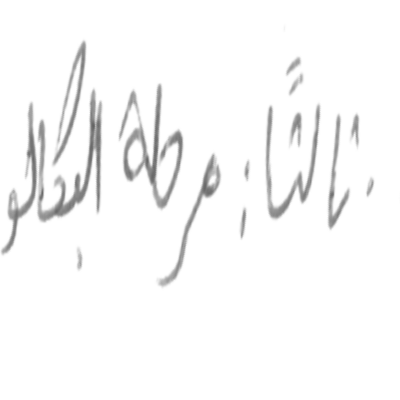 ثالثًا: مرحلة البكالو